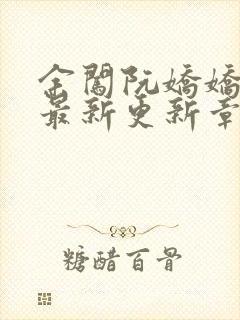 金闺阮嬌嬌
最新更新章
糖醋百骨